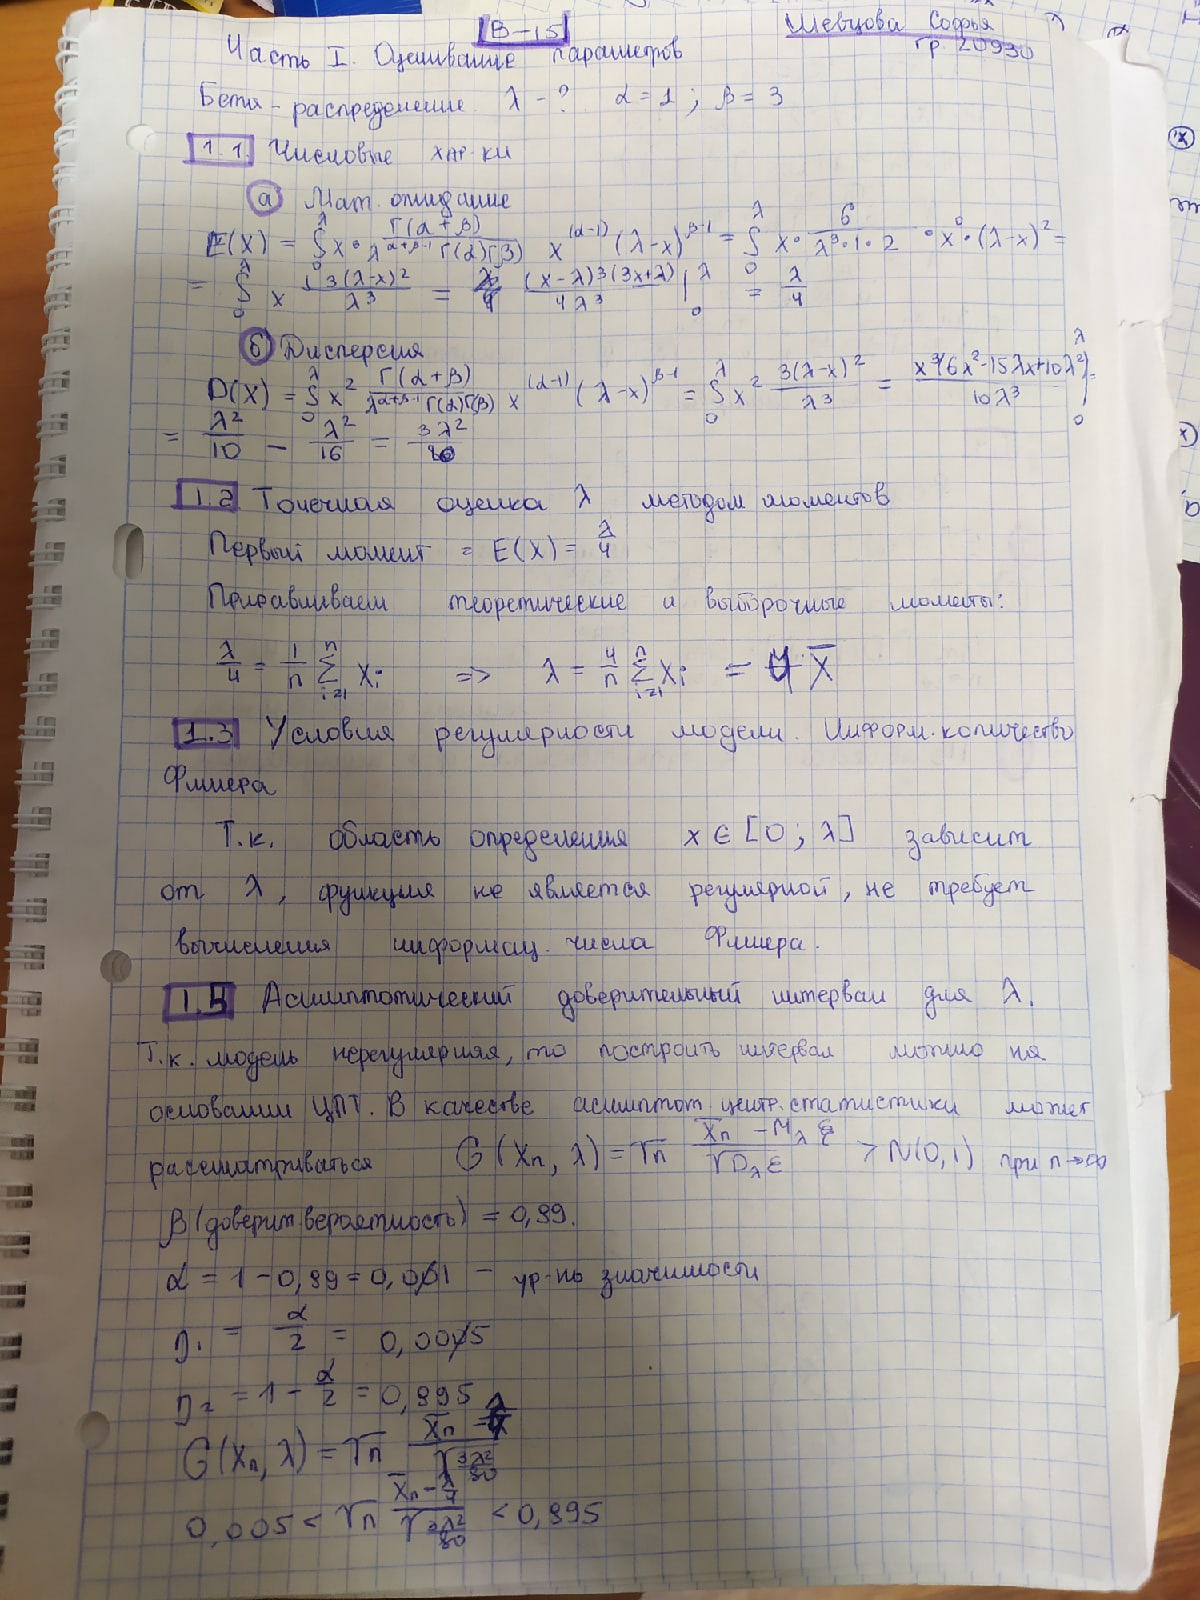 В-15
Шевцова Софья
гр. 20930
Часть I. Оценивание параметров
Бета-распределение. λ - ? α = 1; β = 3
1.1. Числовые хар-ки
а) Мат. ожидание
E(X) = ∫₀^λ x · Γ(α+β) / (λ^(α+β-1) Γ(α)Γ(β)) x^(α-1) (λ-x)^(β-1) = ∫₀^λ x · 6 / (λ³·1·2) · x⁰ · (λ-x)² =
= ∫₀^λ x 3(λ-x)² / λ³ = (x-λ)³(3x+λ) / 4λ³ |₀^λ = λ/4
б) Дисперсия
D(X) = ∫₀^λ x² Γ(α+β) / (λ^(α+β-1) Γ(α)Γ(β)) x^(α-1) (λ-x)^(β-1) = ∫₀^λ x² 3(λ-x)² / λ³ = x³(6x²-15λx+10λ²) / 10λ³ |₀^λ =
= λ²/10 - λ²/16 = 3λ²/80
1.2 Точечная оценка λ методом моментов
Первый момент = E(X) = λ/4
Приравниваем теоретические и выборочные моменты:
λ/4 = 1/n Σ_{i=1}^n Xᵢ => λ = 4/n Σ_{i=1}^n Xᵢ = 4·X̄
1.3 Условия регулярности модели. Информ. количество
Фишера
Т.к. область определения x ∈ [0; λ] зависит
от λ, функция не является регулярной, не требует
вычисления информац. числа Фишера.
1.4 Асимптотический доверительный интервал для λ.
Т.к. модель нерегулярная, то построить интервал можно на
основании ЦПТ. В качестве асимптот. центр. статистики может
рассматриваться G(Xn, λ) = √n (X̄n - M_λ ξ) / √D_λ ξ > N(0,1) при n→∞
β (доверит. вероятность) = 0,99.
α = 1 - 0,99 = 0,01 - ур-нь значимости
η₁ = α/2 = 0,005
η₂ = 1 - α/2 = 0,995
G(Xn, λ) = √n (X̄n - λ/4) / √(3λ²/80)
0,005 < √n (X̄n - λ/4) / √(3λ²/80) < 0,995